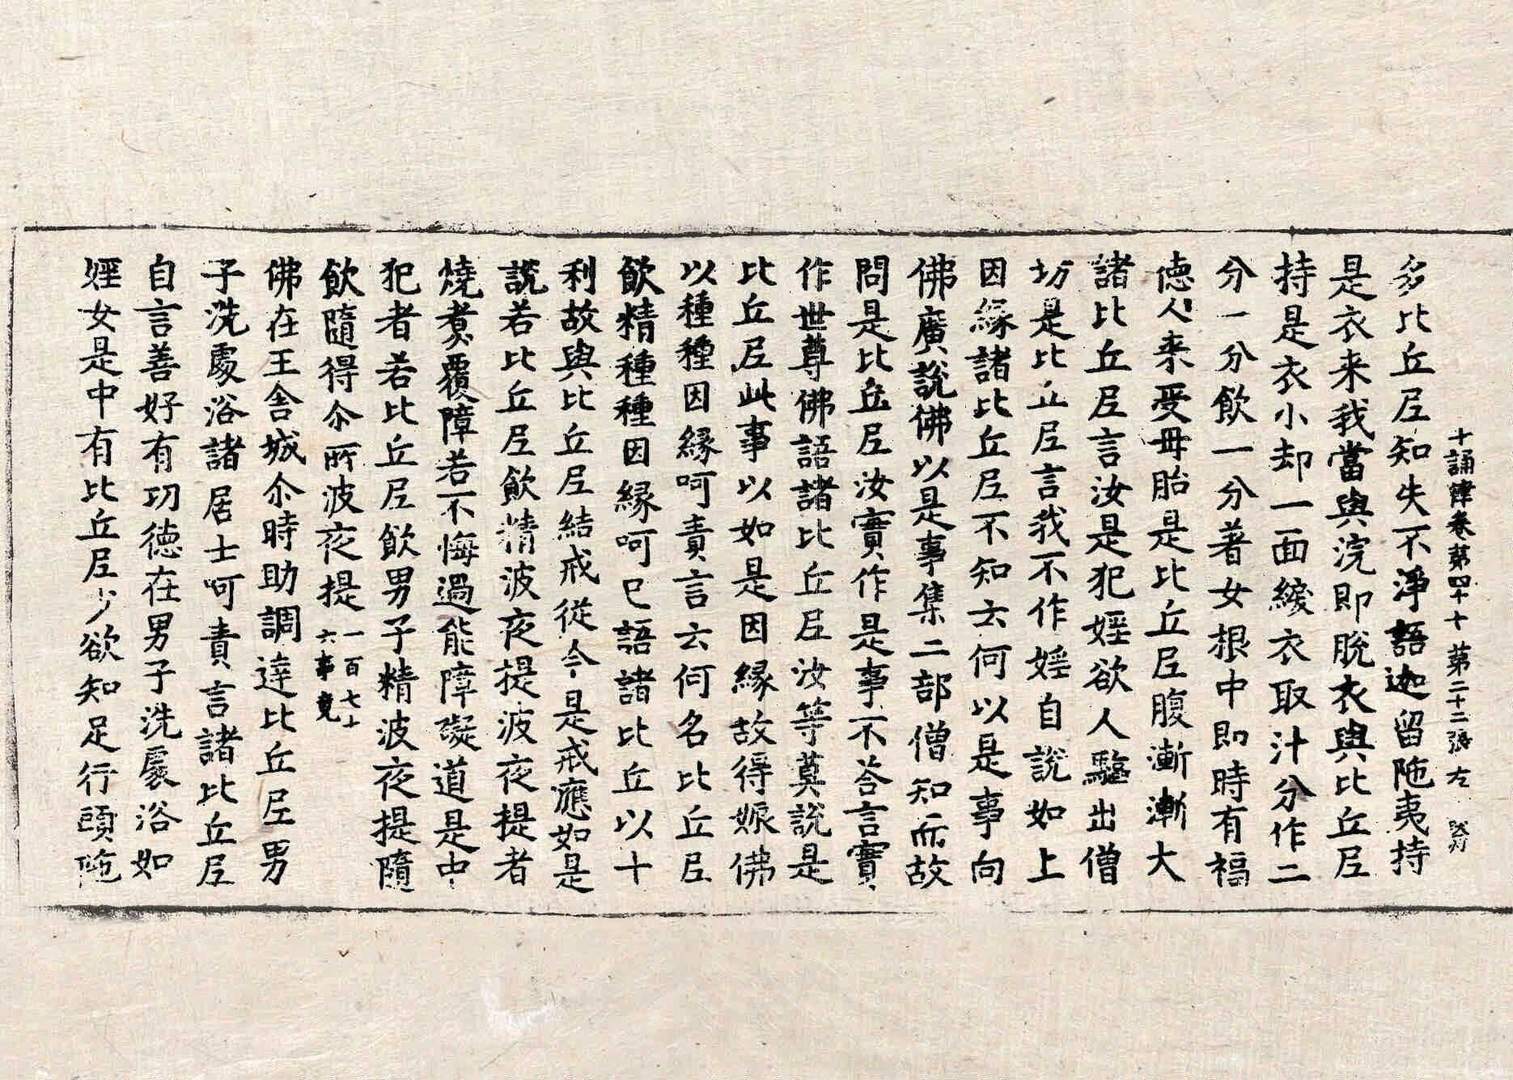 十誦律卷苐四十七 苐二十二張 左
多比丘尼知失不淨語迦留陁夷持
是衣来我當與浣即脫衣與比丘尼
持是衣小却一面緩衣取汁分作二
分一分飲一分著女根中即時有福
德人来受母胎是比丘尼腹漸漸大
諸比丘尼言汝是犯婬欲人驅出僧
坊是比丘尼言我不作婬自說如上
因緣諸比丘尼不知云何以是事向
佛廣說佛以是事集二部僧知而故
問是比丘尼汝實作是事不荅言實
作世尊佛語諸比丘尼汝等莫說是
比丘尼此事以如是因緣故得娠佛
以種種因緣呵責言云何名比丘尼
飲精種種因緣呵已語諸比丘以十
利故與比丘尼結戒從今是戒應如是
說若比丘尼飲精波夜提波夜提者
燒煑覆障若不悔過能障礙道是中
犯者若比丘尼飲男子精波夜提隨
飲隨得尒所波夜提 一百七十六事竟
佛在王舍城尒時助調達比丘尼男
子洗處浴諸居士呵責言諸比丘尼
自言善好有功德在男子洗處浴如
婬女是中有比丘尼少欲知足行頭陁